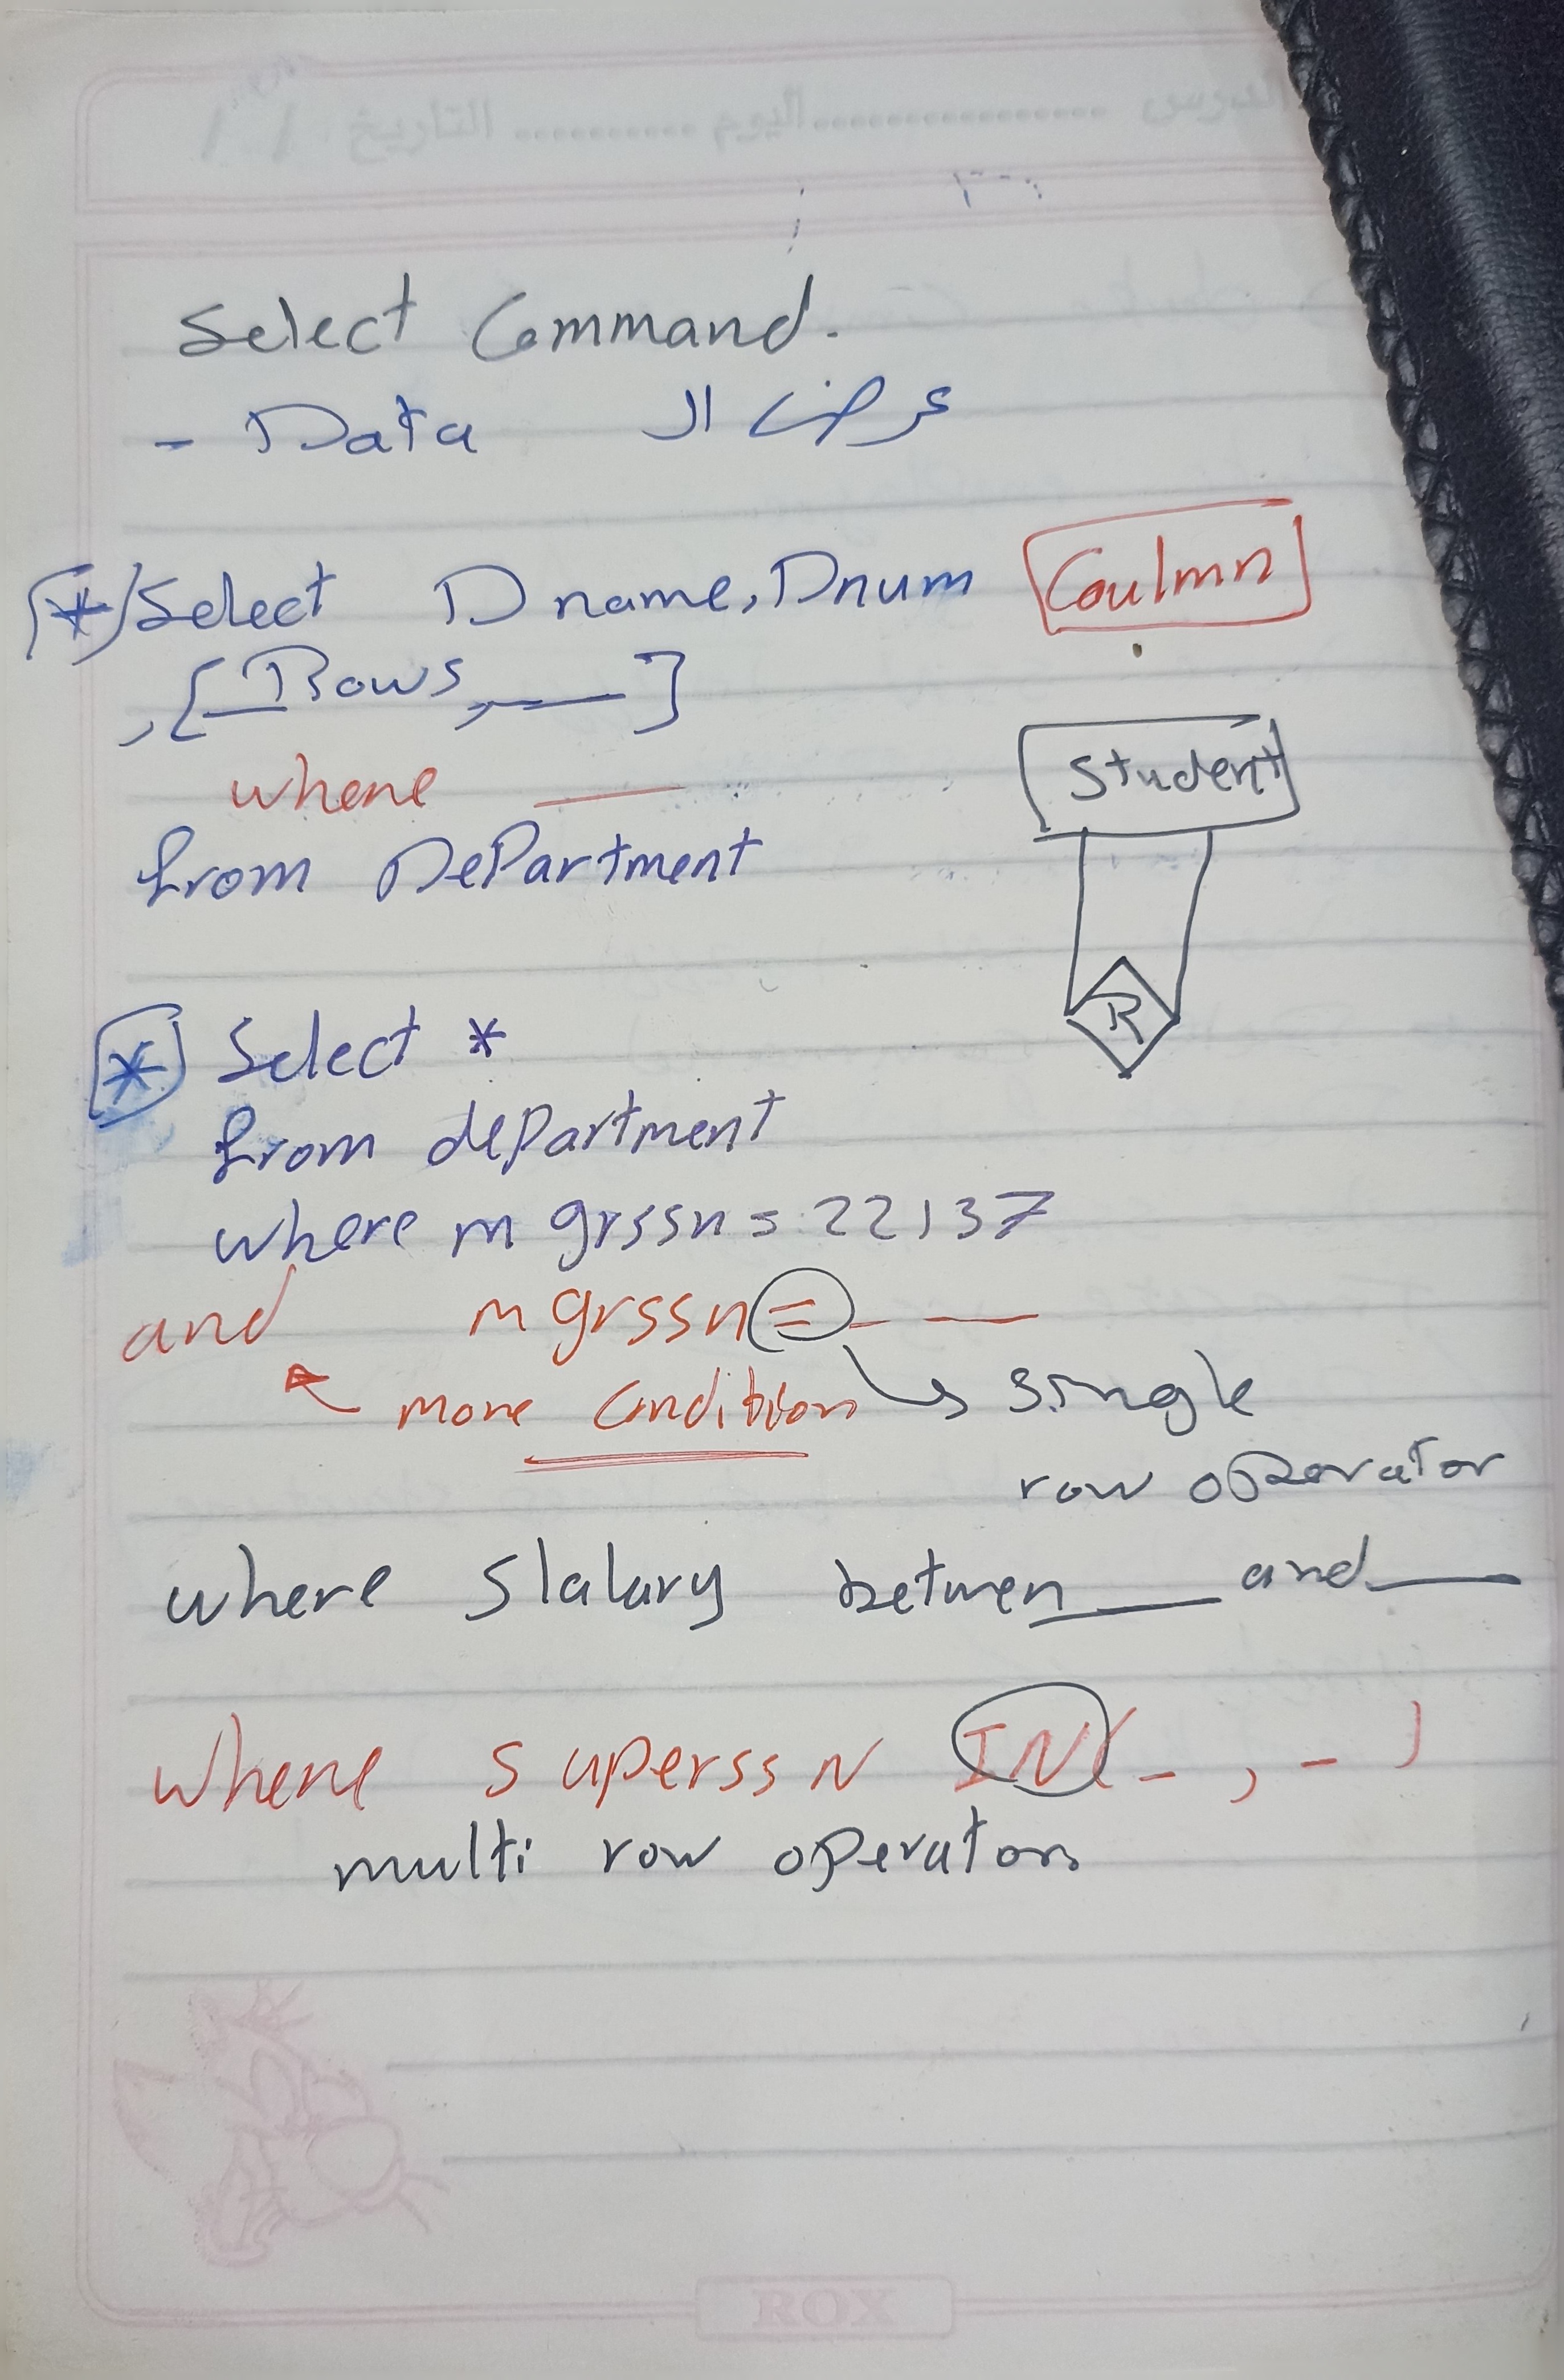 الدرس ................ اليوم .......... التاريخ / /
Select Command.
- Data عرض ال
* Select Dname, Dnum Coulmn
, [ Rows, __ ]
where __
from Department
Student
R
* Select *
from department
where mgrssn = 22137
and mgrssn = __ __
more Condition single
row operator
where Slalary betwen __ and __
where superssN IN( _ , _ )
multi row operator
ROX